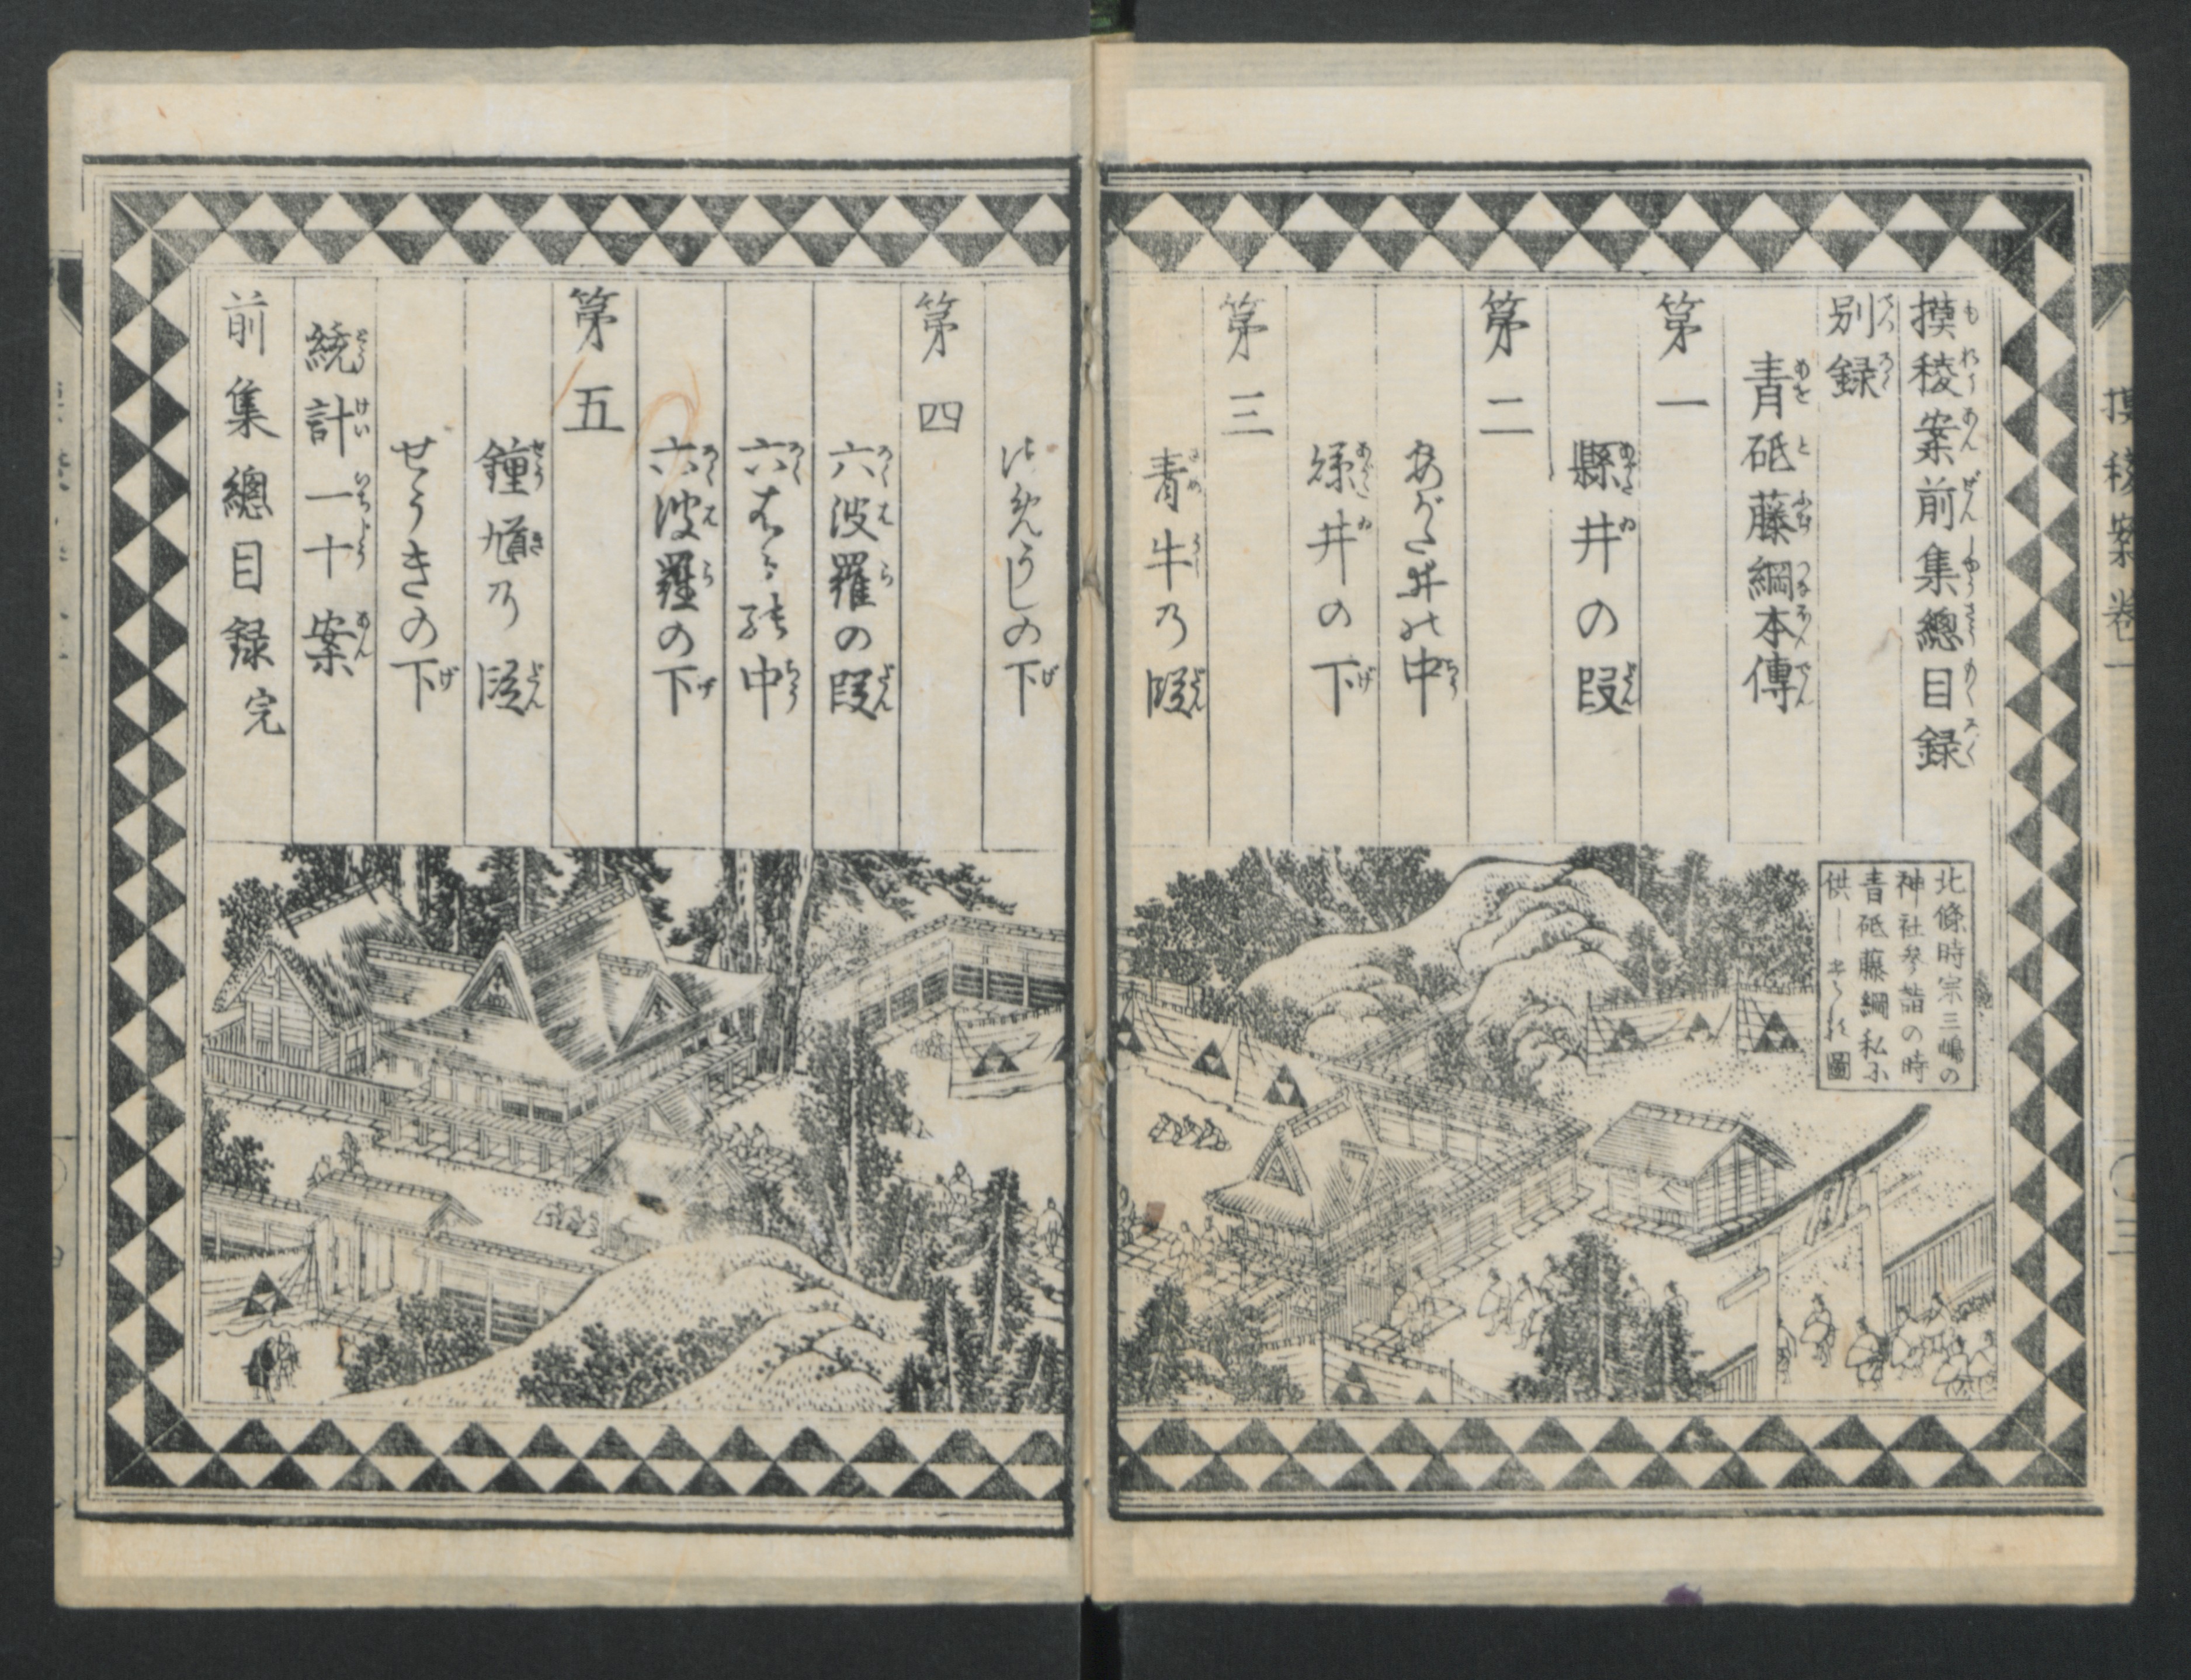 摸稜案前集總目録
別録
青砥藤綱本傳
第一
縣井の段
第二
あがた井の中
縣井の下
第三
青牛乃段
さめうしの下
第四
六波羅の段
六はらの中
六波羅の下
第五
鐘馗乃段
せうきの下
統計一十案
前集總目録完
北條時宗三嶋の
神社参詣の時
青砥藤綱私に
供し 圖
摸稜案巻一
三